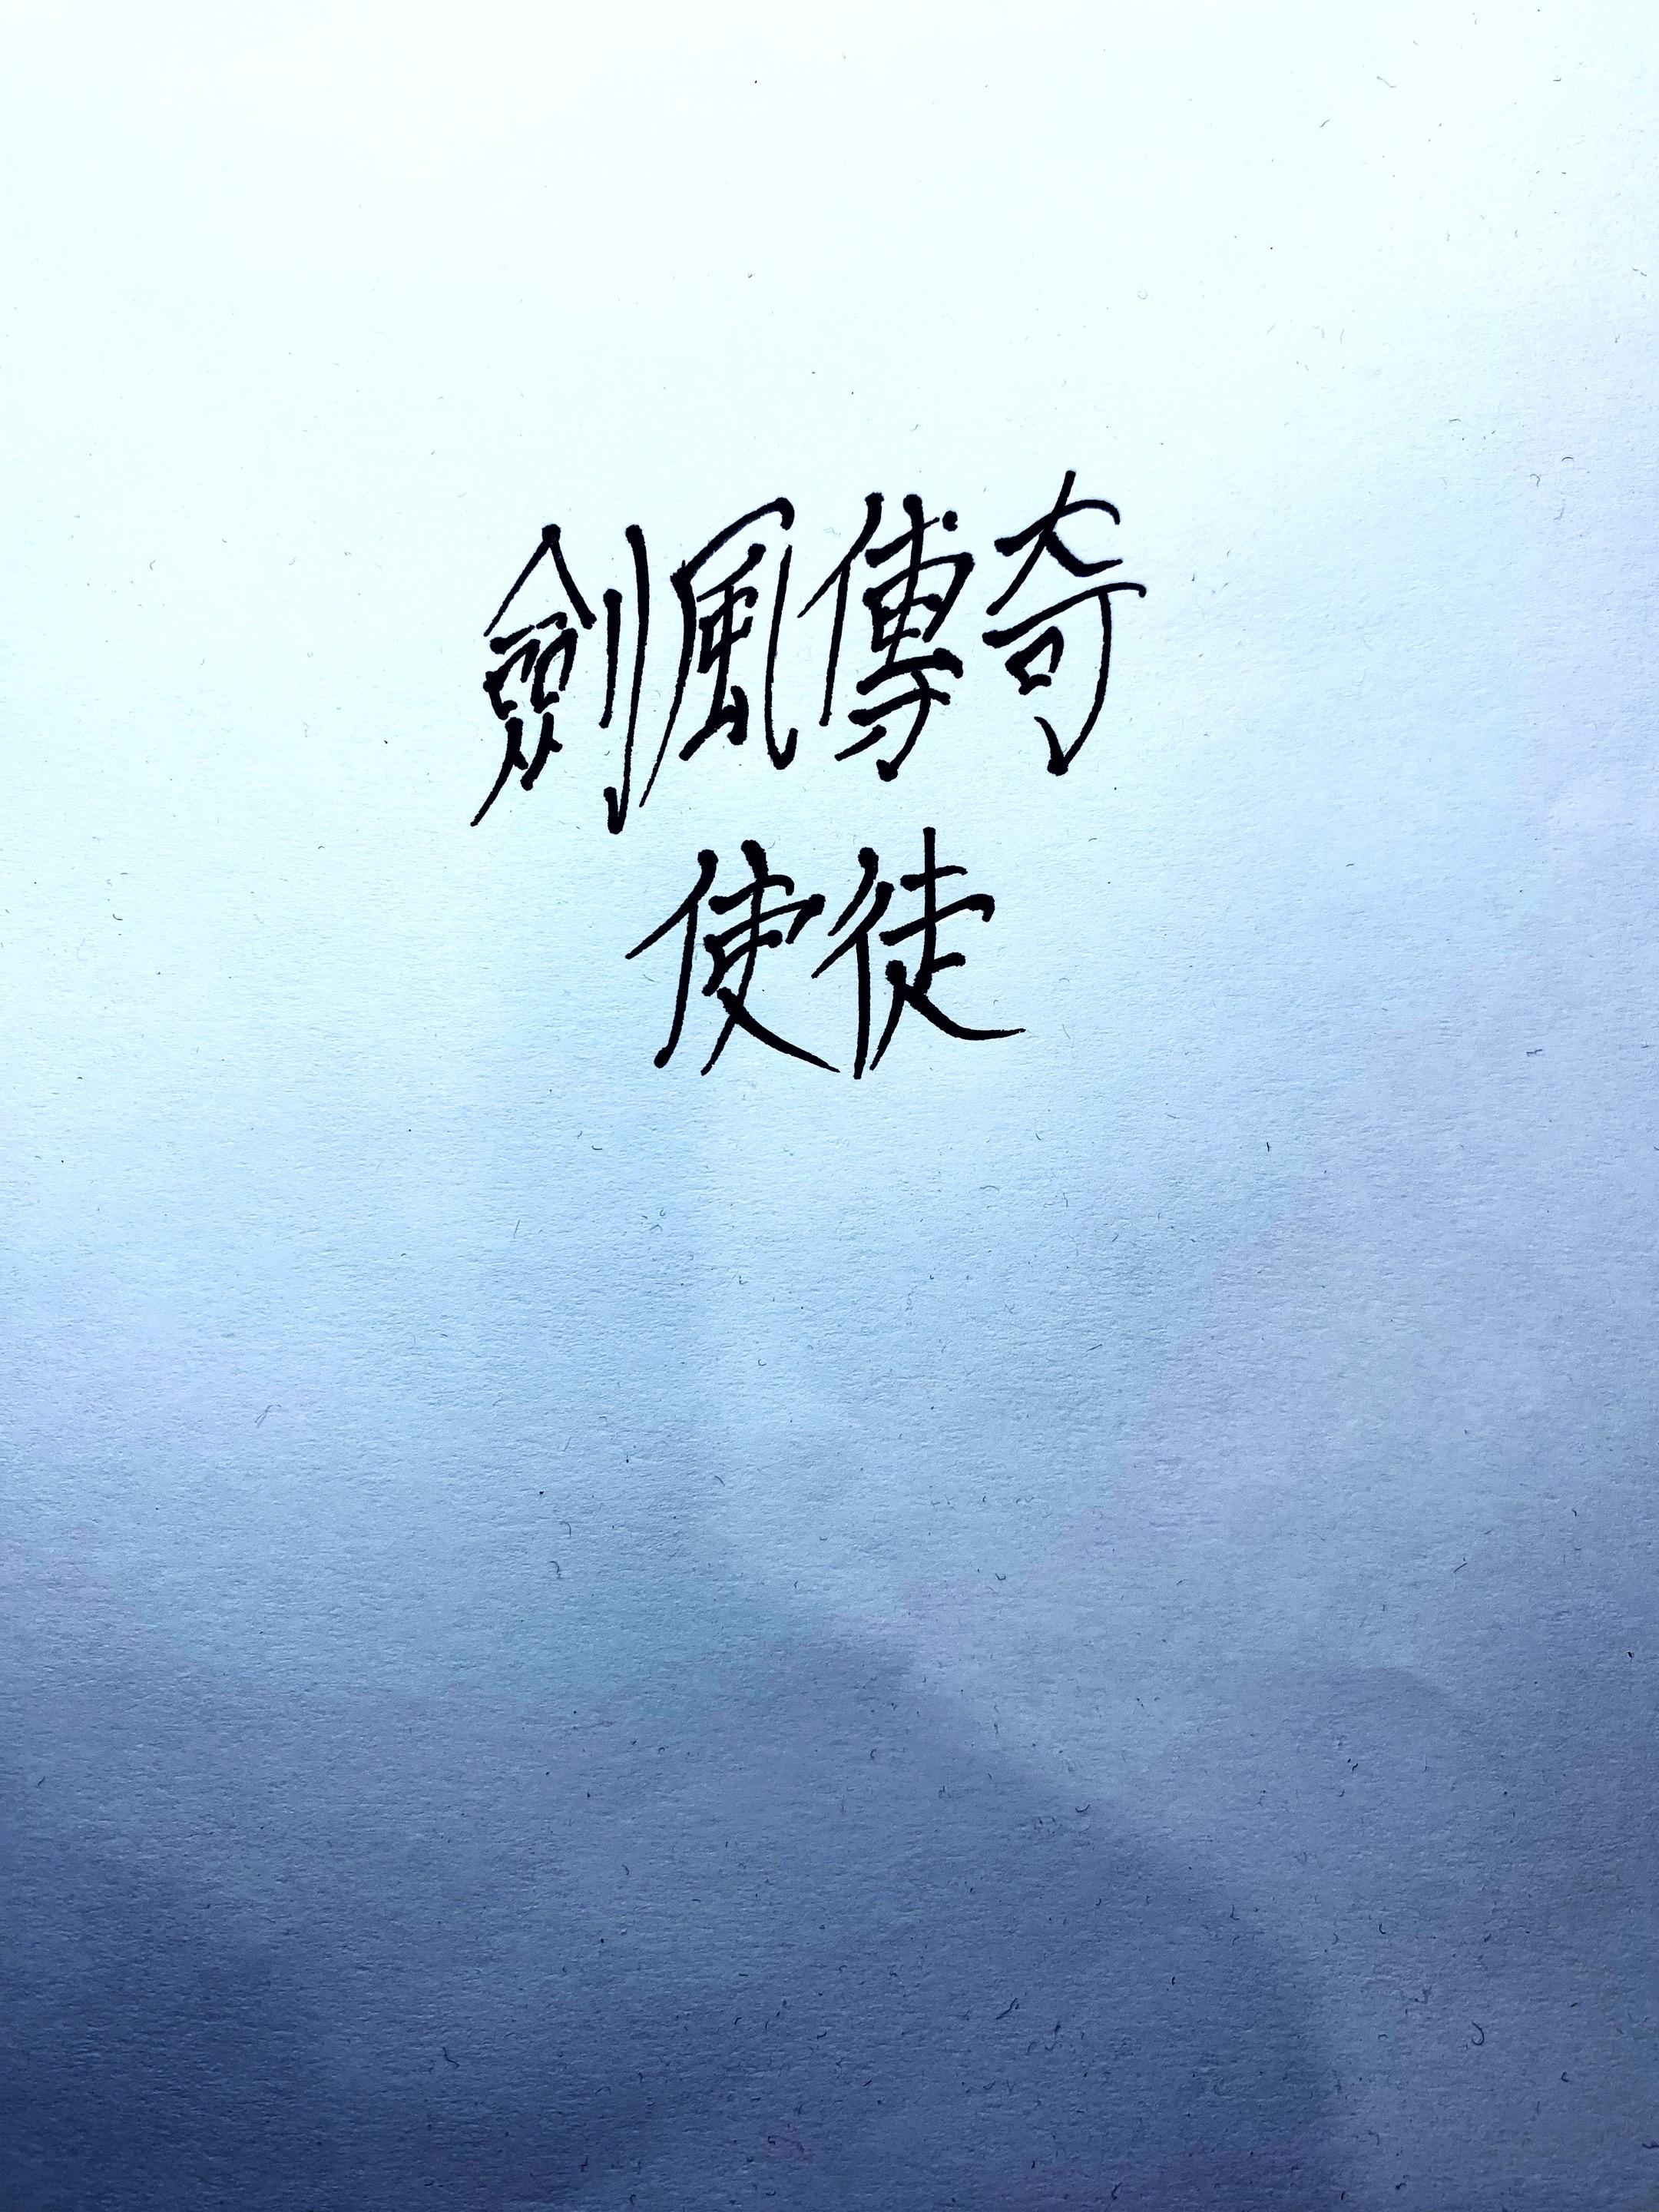 劍風傳奇
使徒